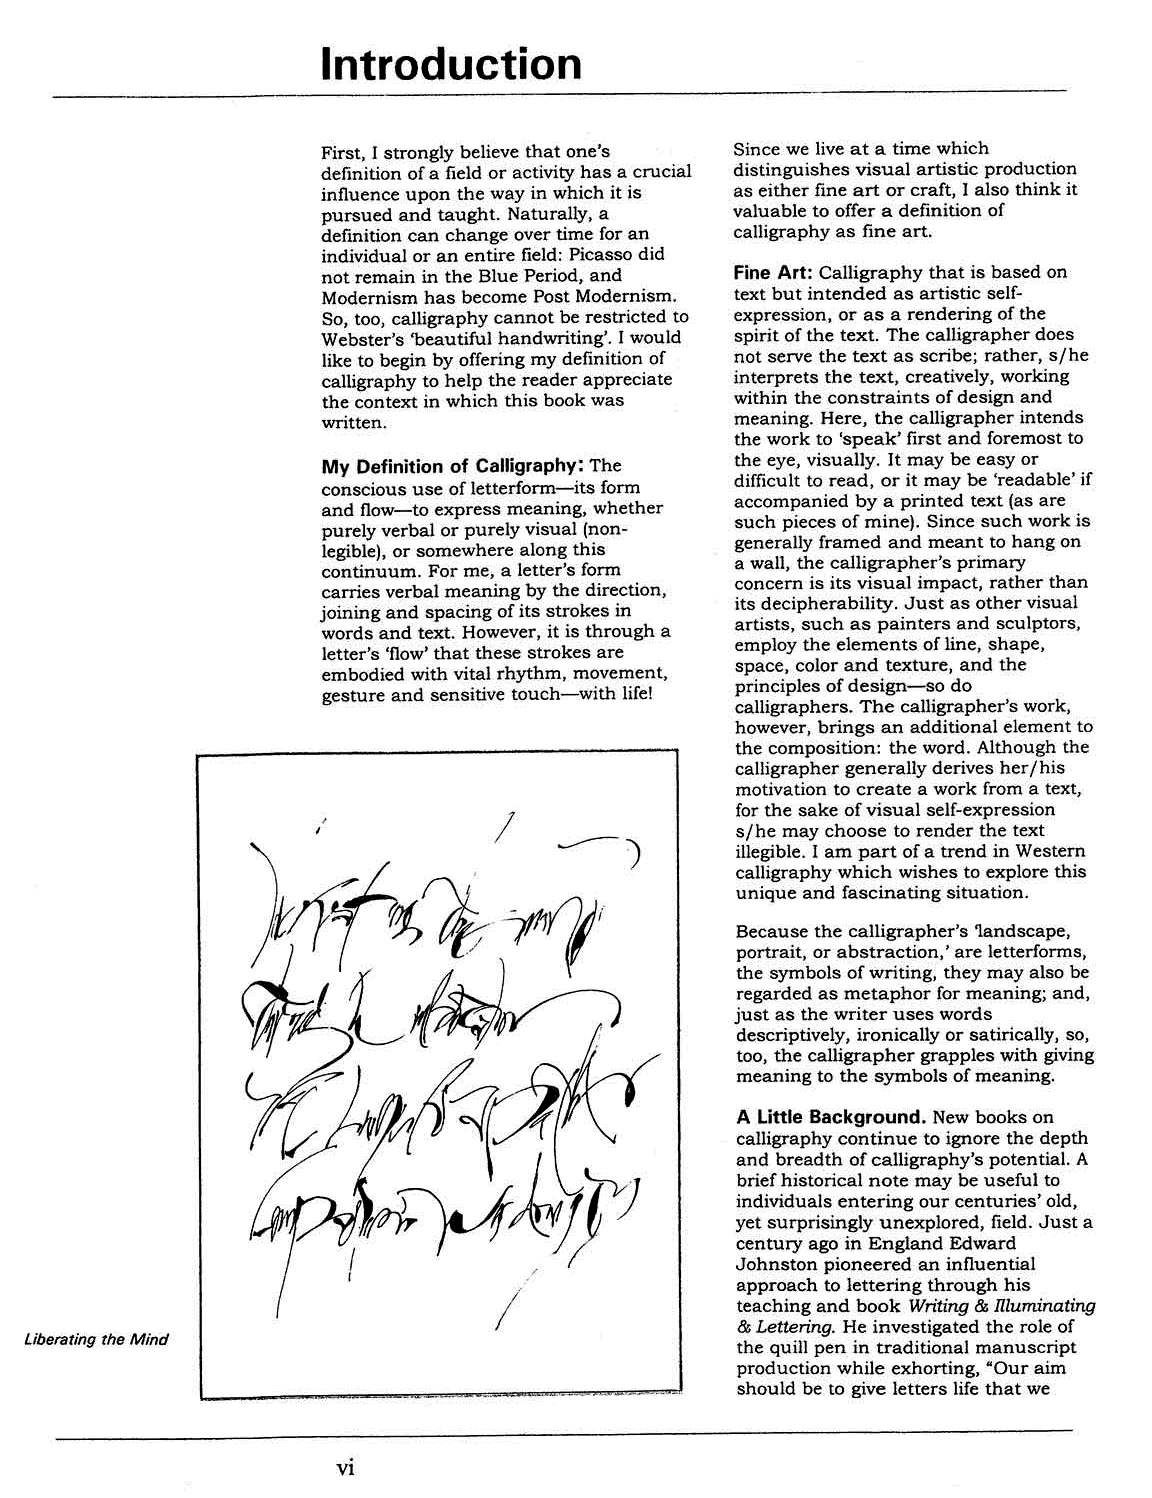 Introduction
First, I strongly believe that one's
definition of a field or activity has a crucial
influence upon the way in which it is
pursued and taught. Naturally, a
definition can change over time for an
individual or an entire field: Picasso did
not remain in the Blue Period, and
Modernism has become Post Modernism.
So, too, calligraphy cannot be restricted to
Webster's 'beautiful handwriting'. I would
like to begin by offering my definition of
calligraphy to help the reader appreciate
the context in which this book was
written.
My Definition of Calligraphy: The
conscious use of letterform—its form
and flow—to express meaning, whether
purely verbal or purely visual (non-
legible), or somewhere along this
continuum. For me, a letter's form
carries verbal meaning by the direction,
joining and spacing of its strokes in
words and text. However, it is through a
letter's 'flow' that these strokes are
embodied with vital rhythm, movement,
gesture and sensitive touch—with life!
Liberating the Mind
Since we live at a time which
distinguishes visual artistic production
as either fine art or craft, I also think it
valuable to offer a definition of
calligraphy as fine art.
Fine Art: Calligraphy that is based on
text but intended as artistic self-
expression, or as a rendering of the
spirit of the text. The calligrapher does
not serve the text as scribe; rather, s/he
interprets the text, creatively, working
within the constraints of design and
meaning. Here, the calligrapher intends
the work to 'speak' first and foremost to
the eye, visually. It may be easy or
difficult to read, or it may be 'readable' if
accompanied by a printed text (as are
such pieces of mine). Since such work is
generally framed and meant to hang on
a wall, the calligrapher's primary
concern is its visual impact, rather than
its decipherability. Just as other visual
artists, such as painters and sculptors,
employ the elements of line, shape,
space, color and texture, and the
principles of design—so do
calligraphers. The calligrapher's work,
however, brings an additional element to
the composition: the word. Although the
calligrapher generally derives her/his
motivation to create a work from a text,
for the sake of visual self-expression
s/he may choose to render the text
illegible. I am part of a trend in Western
calligraphy which wishes to explore this
unique and fascinating situation.
Because the calligrapher's 'landscape,
portrait, or abstraction,' are letterforms,
the symbols of writing, they may also be
regarded as metaphor for meaning; and,
just as the writer uses words
descriptively, ironically or satirically, so,
too, the calligrapher grapples with giving
meaning to the symbols of meaning.
A Little Background. New books on
calligraphy continue to ignore the depth
and breadth of calligraphy's potential. A
brief historical note may be useful to
individuals entering our centuries' old,
yet surprisingly unexplored, field. Just a
century ago in England Edward
Johnston pioneered an influential
approach to lettering through his
teaching and book Writing & Illuminating
& Lettering. He investigated the role of
the quill pen in traditional manuscript
production while exhorting, "Our aim
should be to give letters life that we
vi